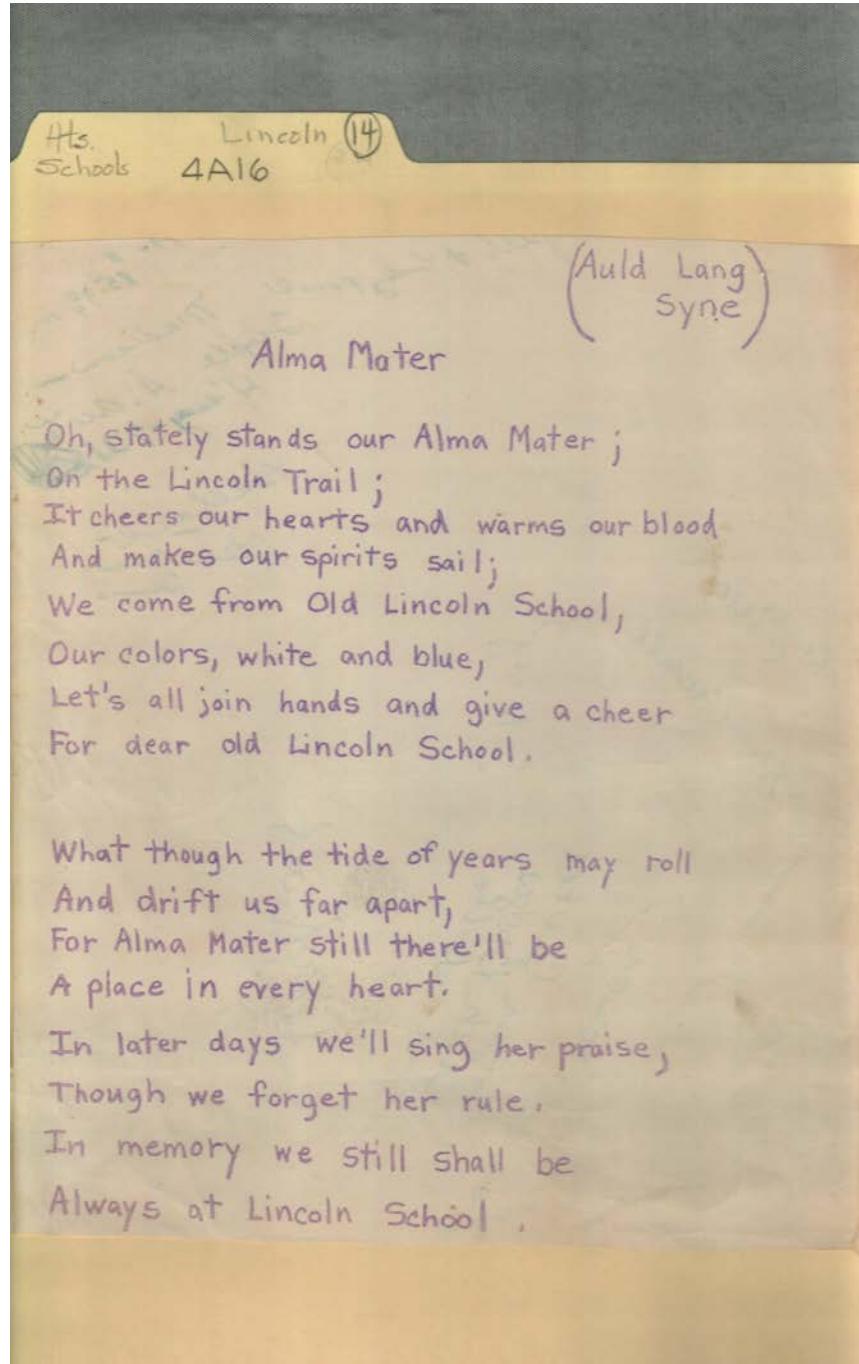 Hts. Lincoln 14
Schools 4A16
(Auld Lang
Syne)
Alma Mater
Oh, stately stands our Alma Mater ;
On the Lincoln Trail ;
It cheers our hearts and warms our blood
And makes our spirits sail;
We come from Old Lincoln School,
Our colors, white and blue,
Let's all join hands and give a cheer
For dear old Lincoln School.
What though the tide of years may roll
And drift us far apart,
For Alma Mater still there'll be
A place in every heart.
In later days we'll sing her praise,
Though we forget her rule.
In memory we still shall be
Always at Lincoln School .